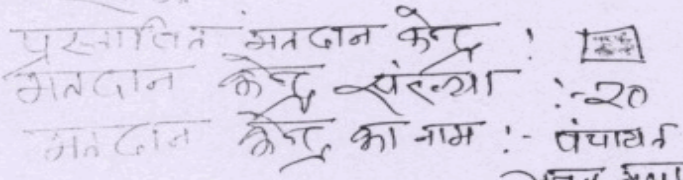 प्रस्तावित मतदान केन्द्र :
मतदान केन्द्र संख्या :- 20
मतदान केन्द्र का नाम :- पंचायत